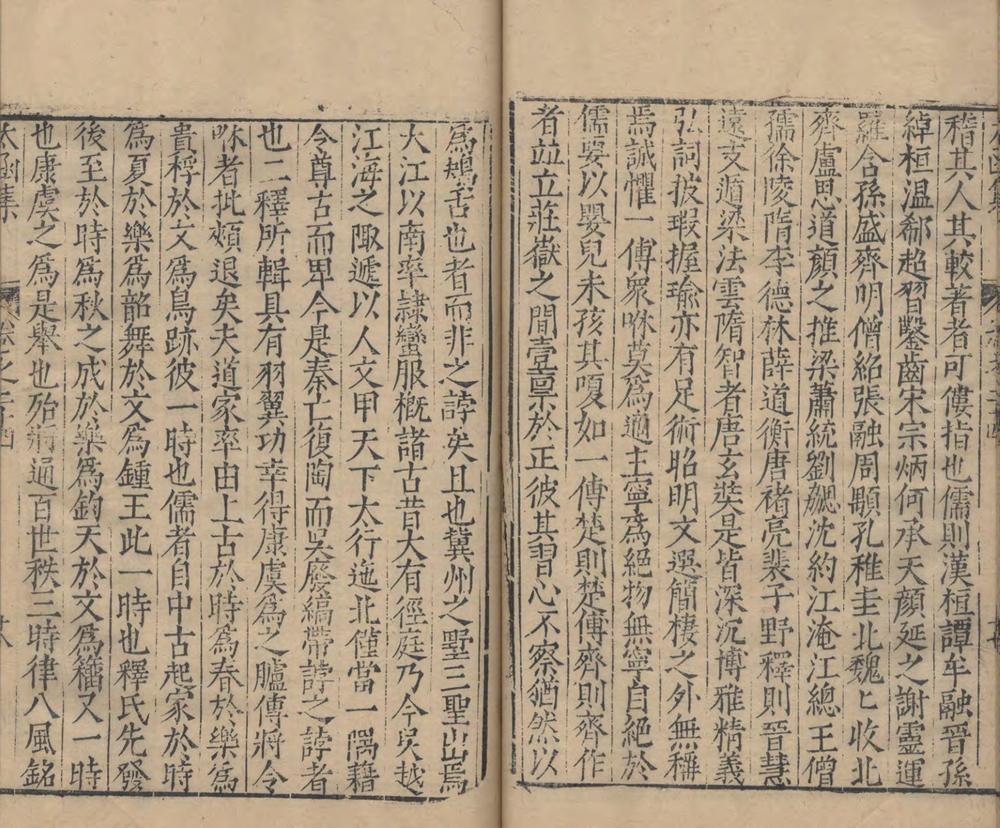 稽其人其較著者可僂指也儒則漢桓譚牟融晉孫
綽桓温郗超習鑿齒宋宗炳何承天顔延之謝靈運
羅含孫盛齊明僧紹張融周顒孔稚圭北魏魏收北
齊盧思道顔之推梁蕭統劉勰沈約江淹江總王僧
孺徐陵隋李德林薛道衡唐褚亮裴子野釋則晉慧
遠支遁梁法雲隋智者唐玄奘是皆深沉博雅精義
弘詞披瑕握瑜亦有足術昭明文選簡棲之外無稱
焉誠懼一傅衆咻莫爲適主寧爲絕物無寧自絕於
儒嬰以嬰兒未孩其嗄如一傅楚則楚傅齊則齊作
者竝立莊嶽之間壹稟於正彼其習心不察猶然以
爲鴂舌也者而非之誖矣且也冀州之墾三聖出焉
大江以南率隷蠻服槪諸古昔大有徑庭乃今吳越
江海之陬遞以人文甲天下太行迤北僅當一隅藉
今尊古而卑今是秦亡復陶而吳廢縞帶誖之誖者
也二釋所輯具有羽翼功幸得康虞爲之臚傳將令
咻者批頰退矣夫道家率由上古於時爲春於樂爲
蕢桴於文爲鳥跡彼一時也儒者自中古起家於時
爲夏於樂爲韶舞於文爲鍾王此一時也釋氏先發
後至於時爲秋之成於樂爲鈞天於文爲籒又一時
也康虞之爲是舉也殆將通百世秩三時律八風銘
太函集
卷之二十四
十八